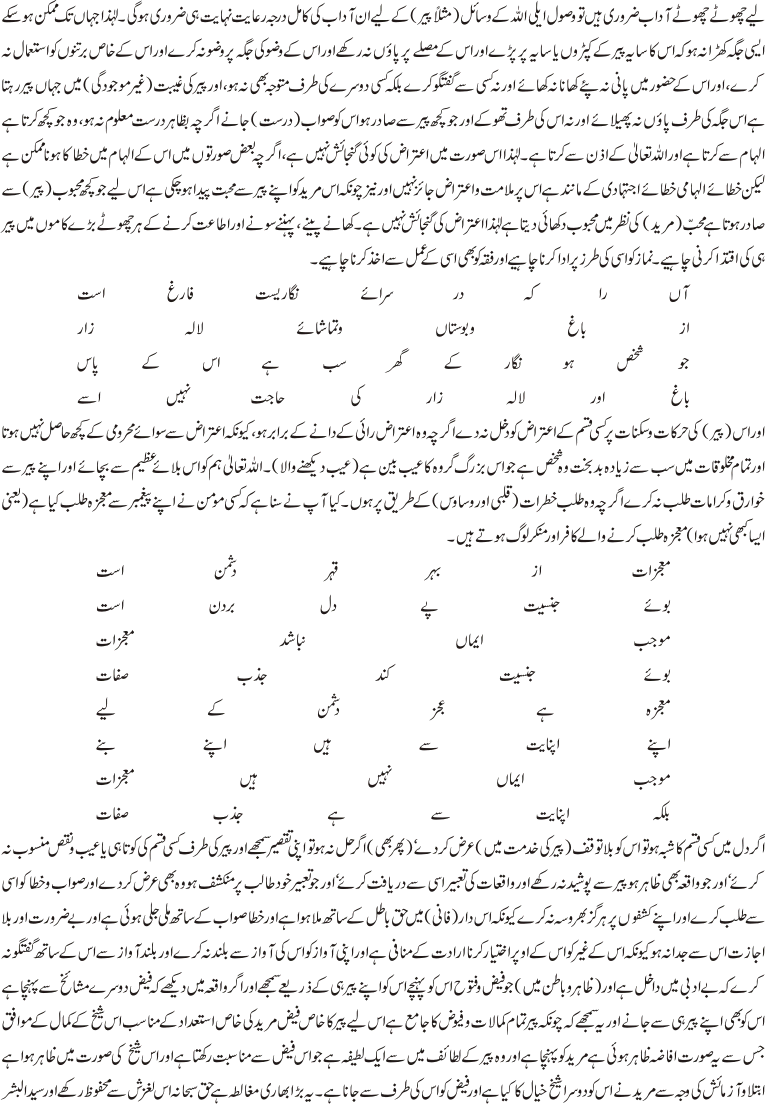 لیے چھوٹے چھوٹے آداب ضروری ہیں تو وصول ایلی اللہ کے وسائل (مثلاً پیر) کے لیے ان آداب کی کامل درجہ رعایت نہایت ہی ضروری ہوگی۔ لہٰذا جہاں تک ممکن ہو سکے
ایسی جگہ کھڑا نہ ہو کہ اس کا سایہ پیر کے کپڑوں یا سایہ پر پڑے اور اس کے مصلے پر پاؤں نہ رکھے اور اس کے وضو کی جگہ پر وضو نہ کرے اور اس کے خاص برتنوں کو استعمال نہ
کرے، اور اس کے حضور میں پانی نہ پئے کھانا نہ کھائے اور نہ کسی سے گفتگو کرے بلکہ کسی دوسرے کی طرف متوجہ بھی نہ ہو، اور پیر کی غیبت (غیر موجودگی) میں جہاں پیر رہتا
ہے اس جگہ کی طرف پاؤں نہ پھیلائے اور نہ اس کی طرف تھوکے اور جو کچھ پیر سے صادر ہو اس کو صواب (درست) جانے اگرچہ بظاہر درست معلوم نہ ہو، وہ جو کچھ کرتا ہے
الہام سے کرتا ہے اور اللہ تعالیٰ کے اذن سے کرتا ہے۔ لہٰذا اس صورت میں اعتراض کی کوئی گنجائش نہیں ہے، اگرچہ بعض صورتوں میں اس کے الہام میں خطا کا ہونا ممکن ہے
لیکن خطائے الہامی خطائے اجتہادی کے مانند ہے اس پر ملامت و اعتراض جائز نہیں اور نیز چونکہ اس مرید کو اپنے پیر سے محبت پیدا ہو چکی ہے اس لیے جو کچھ محبوب (پیر) سے
صادر ہوتا ہے محبّ (مرید) کی نظر میں محبوب دکھائی دیتا ہے لہٰذا اعتراض کی گنجائش نہیں ہے۔ کھانے پینے، پہننے سونے اور اطاعت کرنے کے ہر چھوٹے بڑے کاموں میں پیر
ہی کی اقتدا کرنی چاہیے۔ نماز کو اسی کی طرز پر ادا کرنا چاہیے اور فقہ کو بھی اسی کے عمل سے اخذ کرنا چاہیے۔
آں را کہ در سرائے نگاریست فارغ است
از باغ و بوستاں و تماشائے لالہ زار
جو شخص ہو نگار کے گھر سب ہے اس کے پاس
باغ اور لالہ زار کی حاجت نہیں اسے
اور اس (پیر) کی حرکات و سکنات پر کسی قسم کے اعتراض کو دخل نہ دے اگرچہ وہ اعتراض رائی کے دانے کے برابر ہو، کیونکہ اعتراض سے سوائے محرومی کے کچھ حاصل نہیں ہوتا
اور تمام مخلوقات میں سب سے زیادہ بدبخت وہ شخص ہے جو اس بزرگ گروہ کا عیب بین ہے (عیب دیکھنے والا)۔ اللہ تعالیٰ ہم کو اس بلائے عظیم سے بچائے اور اپنے پیر سے
خوارق و کرامات طلب نہ کرے اگرچہ وہ طلب خطرات (قلبی اور وساوس) کے طریق پر ہوں۔ کیا آپ نے سنا ہے کہ کسی مومن نے اپنے پیغمبر سے معجزہ طلب کیا ہے (یعنی
ایسا کبھی نہیں ہوا) معجزہ طلب کرنے والے کافر اور منکر لوگ ہوتے ہیں۔
معجزات از بہر قہر دشمن است
بوئے جنسیت پے دل بردن است
موجب ایماں نباشد معجزات
بوئے جنسیت کند جذب صفات
معجزہ ہے عجز دشمن کے لیے
اپنے اپنایت سے ہیں اپنے بنے
موجب ایماں نہیں ہیں معجزات
بلکہ اپنایت سے ہے جذب صفات
اگر دل میں کسی قسم کا شبہ ہو تو اس کو بلا توقف (پیر کی خدمت میں) عرض کر دے‘ (پھر بھی) اگر حل نہ ہو تو اپنی تقصیر سمجھے اور پیر کی طرف کسی قسم کی کوتاہی یا عیب و نقص منسوب نہ
کرے‘ اور جو واقعہ بھی ظاہر ہو پیر سے پوشیدہ نہ رکھے اور واقعات کی تعبیر اسی سے دریافت کرے‘ اور جو تعبیر خود طالب پر منکشف ہو وہ بھی عرض کر دے اور صواب و خطا کو اسی
سے طلب کرے اور اپنے کشفوں پر ہرگز بھروسہ نہ کرے کیونکہ اس دار (فانی) میں حق باطل کے ساتھ ملا ہوا ہے اور خطا صواب کے ساتھ ملی جلی ہوئی ہے اور بے ضرورت اور بلا
اجازت اس سے جدا نہ ہو کیونکہ اس کے غیر کو اس کے اوپر اختیار کرنا ارادت کے منافی ہے اور اپنی آواز کو اس کی آواز سے بلند نہ کرے اور بلند آواز سے اس کے ساتھ گفتگو نہ
کرے کہ بے ادبی میں داخل ہے اور (ظاہر و باطن میں) جو فیض و فتوح اس کو پہنچے اس کو اپنے پیر ہی کے ذریعے سمجھے اور اگر واقعہ میں دیکھے کہ فیض دوسرے مشائخ سے پہنچا ہے
اس کو بھی اپنے پیر ہی سے جانے اور یہ سمجھے کہ چونکہ پیر تمام کمالات و فیوض کا جامع ہے اس لیے پیر کا خاص فیض مرید کی خاص استعداد کے مناسب اس شیخ کے کمال کے موافق
جس سے یہ صورت افاضہ ظاہر ہوئی ہے مرید کو پہنچا ہے اور وہ پیر کے لطائف میں سے ایک لطیفہ ہے جو اس فیض سے مناسبت رکھتا ہے اور اس شیخ کی صورت میں ظاہر ہوا ہے
ابتلا و آزمائش کی وجہ سے مرید نے اس کو دوسرا شیخ خیال کا کیا ہے اور فیض کو اس کی طرف سے جانا ہے۔ یہ بڑا بھاری مغالطہ ہے حق سبحانہ اس لغزش سے محفوظ رکھے اور سید البشر